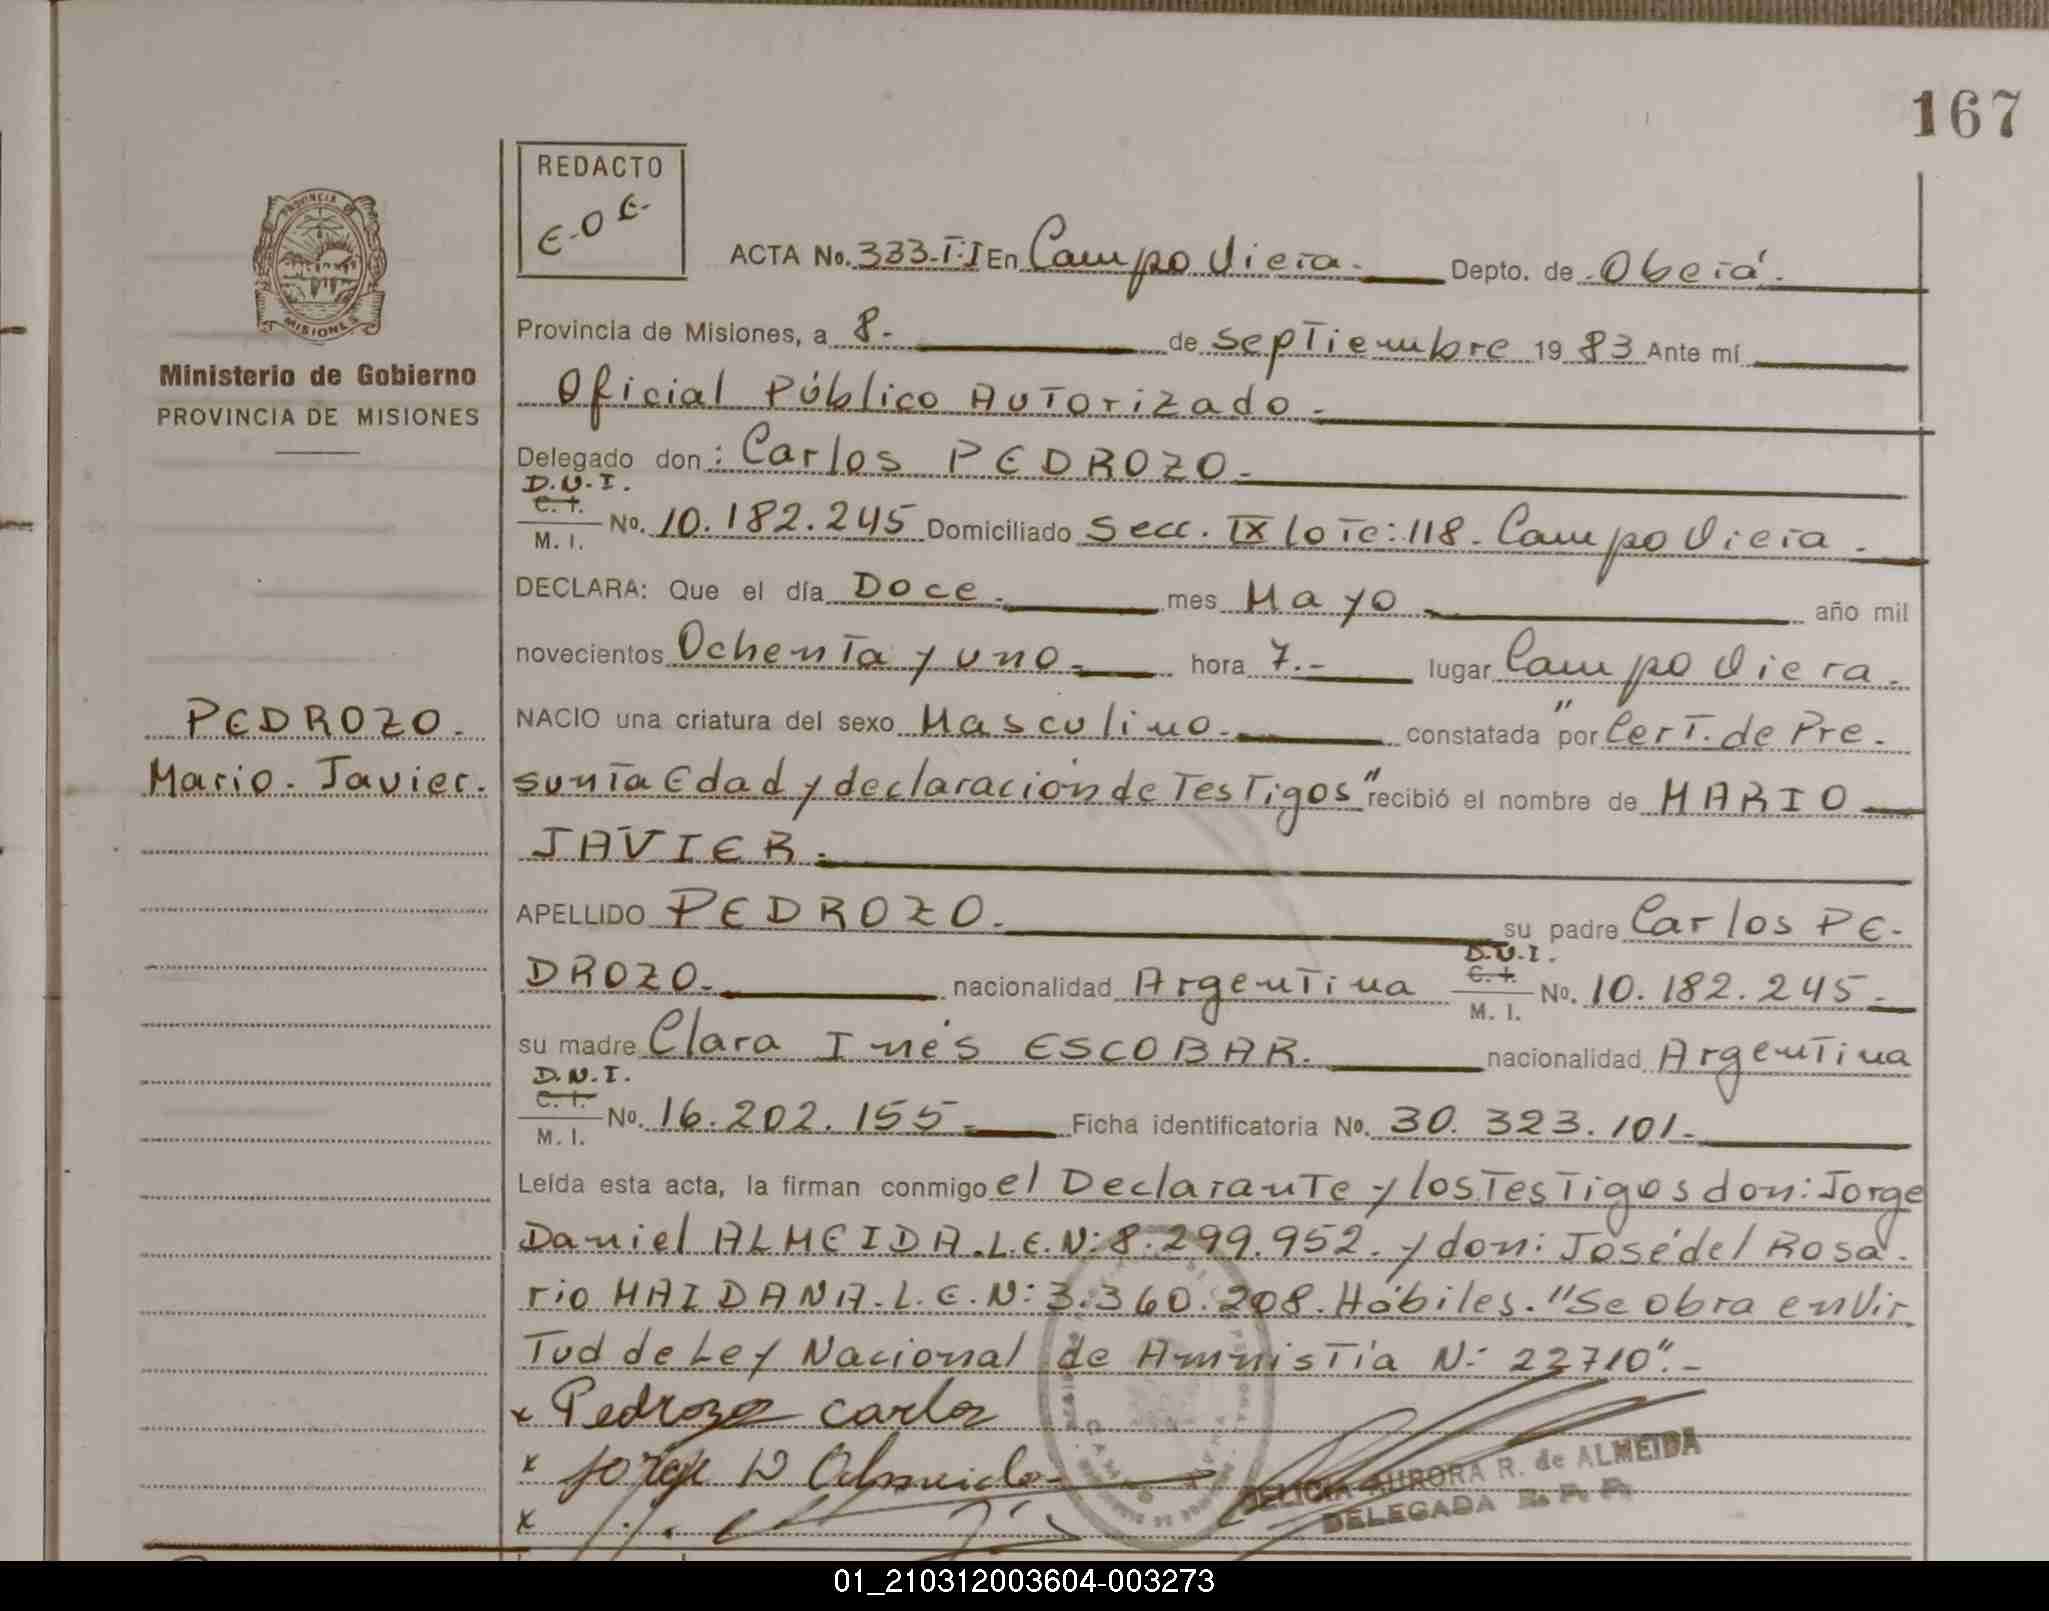 167
REDACTO
E-O E-
PROVINCIA DE
MISIONES
Ministerio de Gobierno
PROVINCIA DE MISIONES
PEDROZO.
Mario. Javier.
ACTA No. 333-T:I En Campo Viera. Depto. de Oberá.
Provincia de Misiones, a 8. de septiembre 19 83 Ante mí
Oficial Público Autorizado.
Delegado don: Carlos PEDROZO.
D.N.I.
C. I.
M. I. No. 10.182.245 Domiciliado Secc. IX lote: 118. Campo Viera.
DECLARA: Que el día Doce. mes Mayo año mil
novecientos Ochenta y uno. hora 7.- lugar Campo Viera.
NACIO una criatura del sexo Masculino. constatada "por Cert. de Pre-
sunta Edad y declaración de Testigos" recibió el nombre de MARIO
JAVIER.
APELLIDO PEDROZO. su padre Carlos PE-
D.N.I.
C. I.
DROZO. nacionalidad Argentina M. I. No. 10.182.245.
su madre Clara Inés ESCOBAR. nacionalidad Argentina
D.N.I.
C. I.
M. I. No. 16.202.155. Ficha identificatoria No. 30.323.101.
Leída esta acta, la firman conmigo el Declarante y los Testigos don: Jorge
Daniel ALMEIDA. L.E.N: 8.299.952. y don: José del Rosa-
rio MAIDANA. L.E.N: 3.360.208. Hábiles. "Se obra en Vir-
tud de Ley Nacional de Amnistía N: 22710".-
x Pedrozo Carlos
x Jorge D Almeida
x
DELICIA AURORA R. de ALMEIDA
DELEGADA R. P. P.
01_210312003604-003273